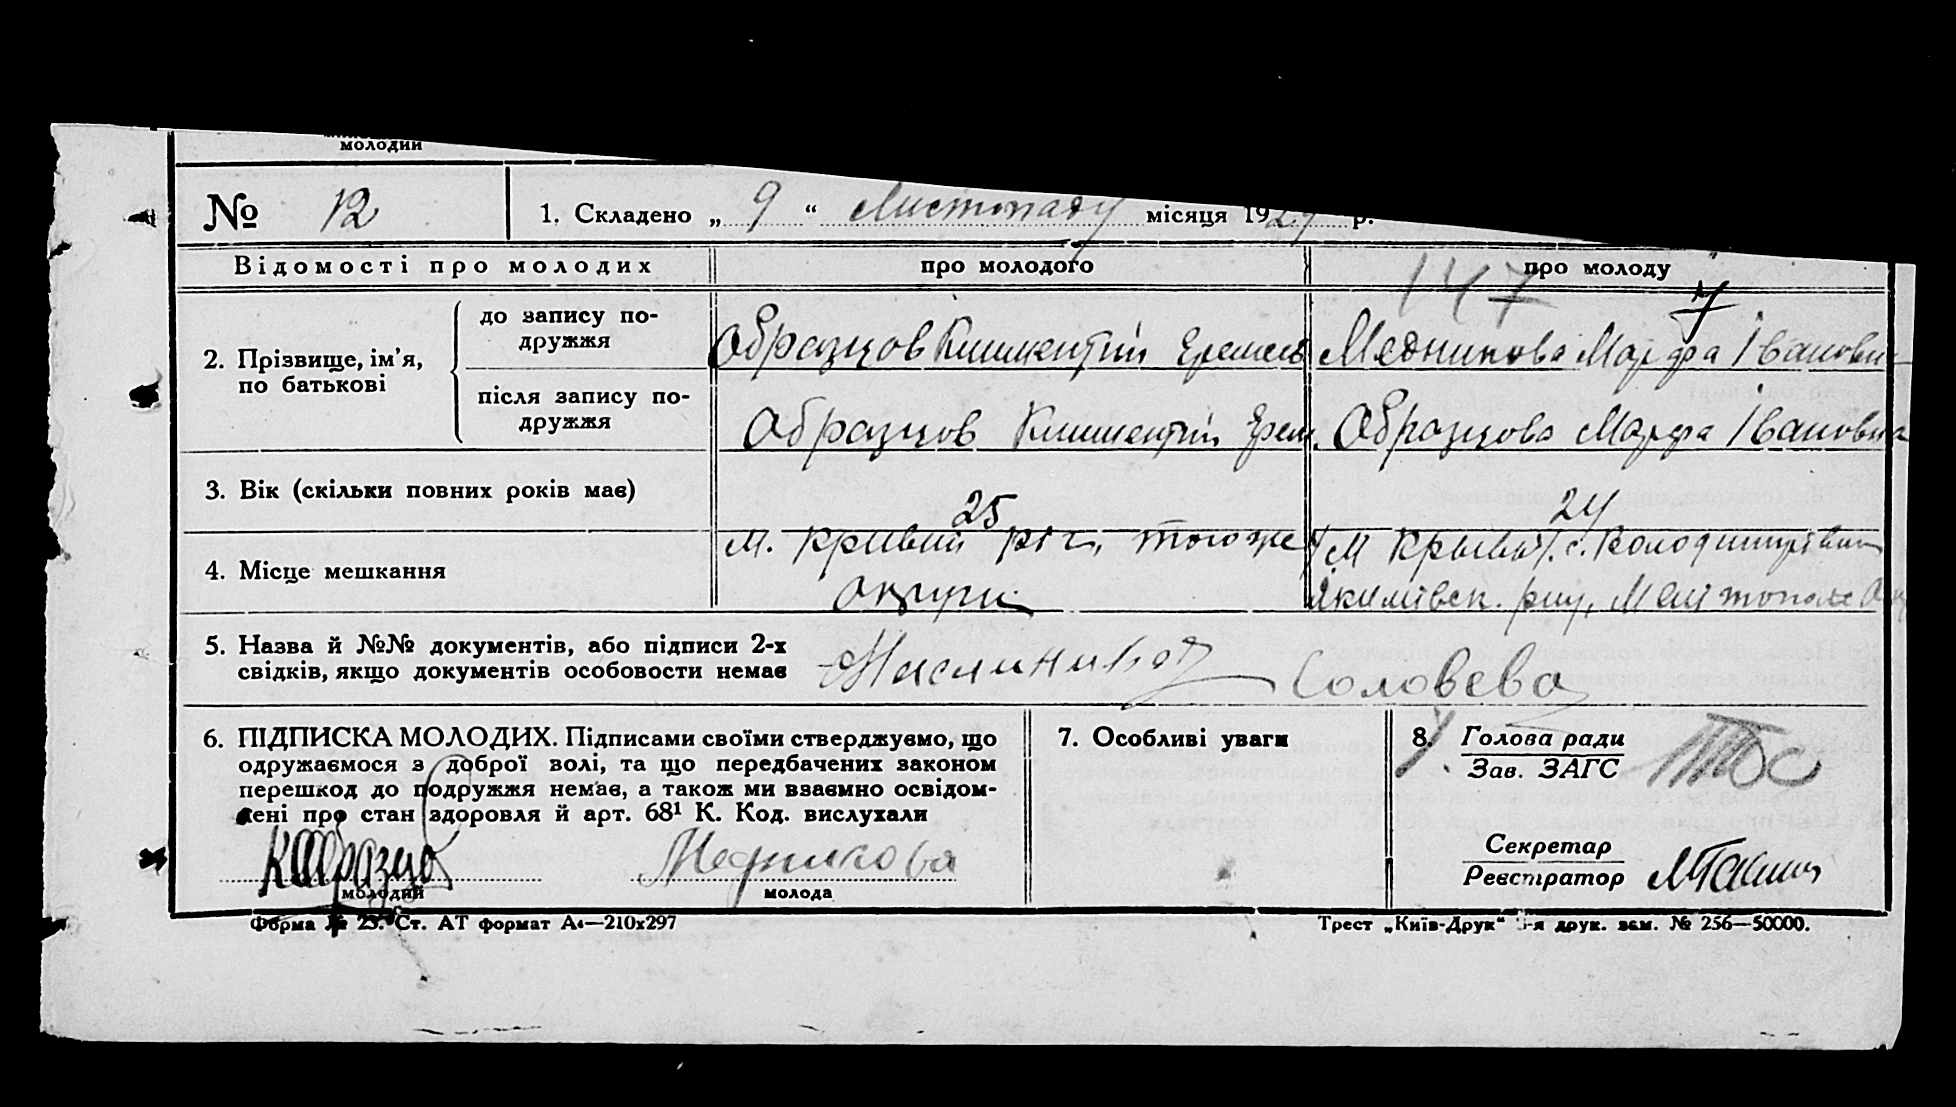 молодий
№ 12
1. Складено „ 9 “ Листопаду місяця 1929 р.
Відомості про молодих
про молодого
про молоду
147
2. Прізвище, ім’я, по батькові
до запису подружжя
Образцов Климентій Еремеев
Медникова Марфа Івановна
після запису подружжя
Образцов Климентій Ерем.
Образцова Марфа Івановна
3. Вік (скільки повних років має)
25
24
4. Місце мешкання
м. Кривий ріг, тогоже
округи
Якимівск. рну, Мелітопольс
5. Назва й №№ документів, або підписи 2-х
свідків, якщо документів особовости немає
Соловєва
6. ПІДПИСКА МОЛОДИХ. Підписами своїми стверджуємо, що
одружаємося з доброї волі, та що передбачених законом
перешкод до подружжя немає, а також ми взаємно освідом-
лені про стан здоровля й арт. 68¹ К. Код. вислухали
КОбразцов
Медникова
молодий
молода
7. Особливі уваги
8. Голова ради
Зав. ЗАГС
Секретар
Реєстратор
Форма № 23. Ст. АТ формат А4—210х297
Трест „Київ-Друк“ 3-я друк. зам. № 256—50000.